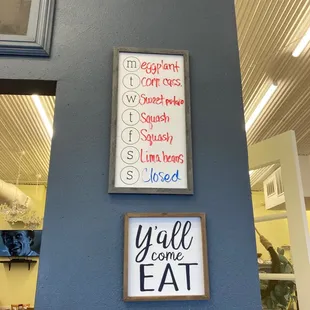 m eggplant
t corn cass.
w Sweet potato
t Squash
f Squash
s Lima beans
s Closed
y'all
come
EAT